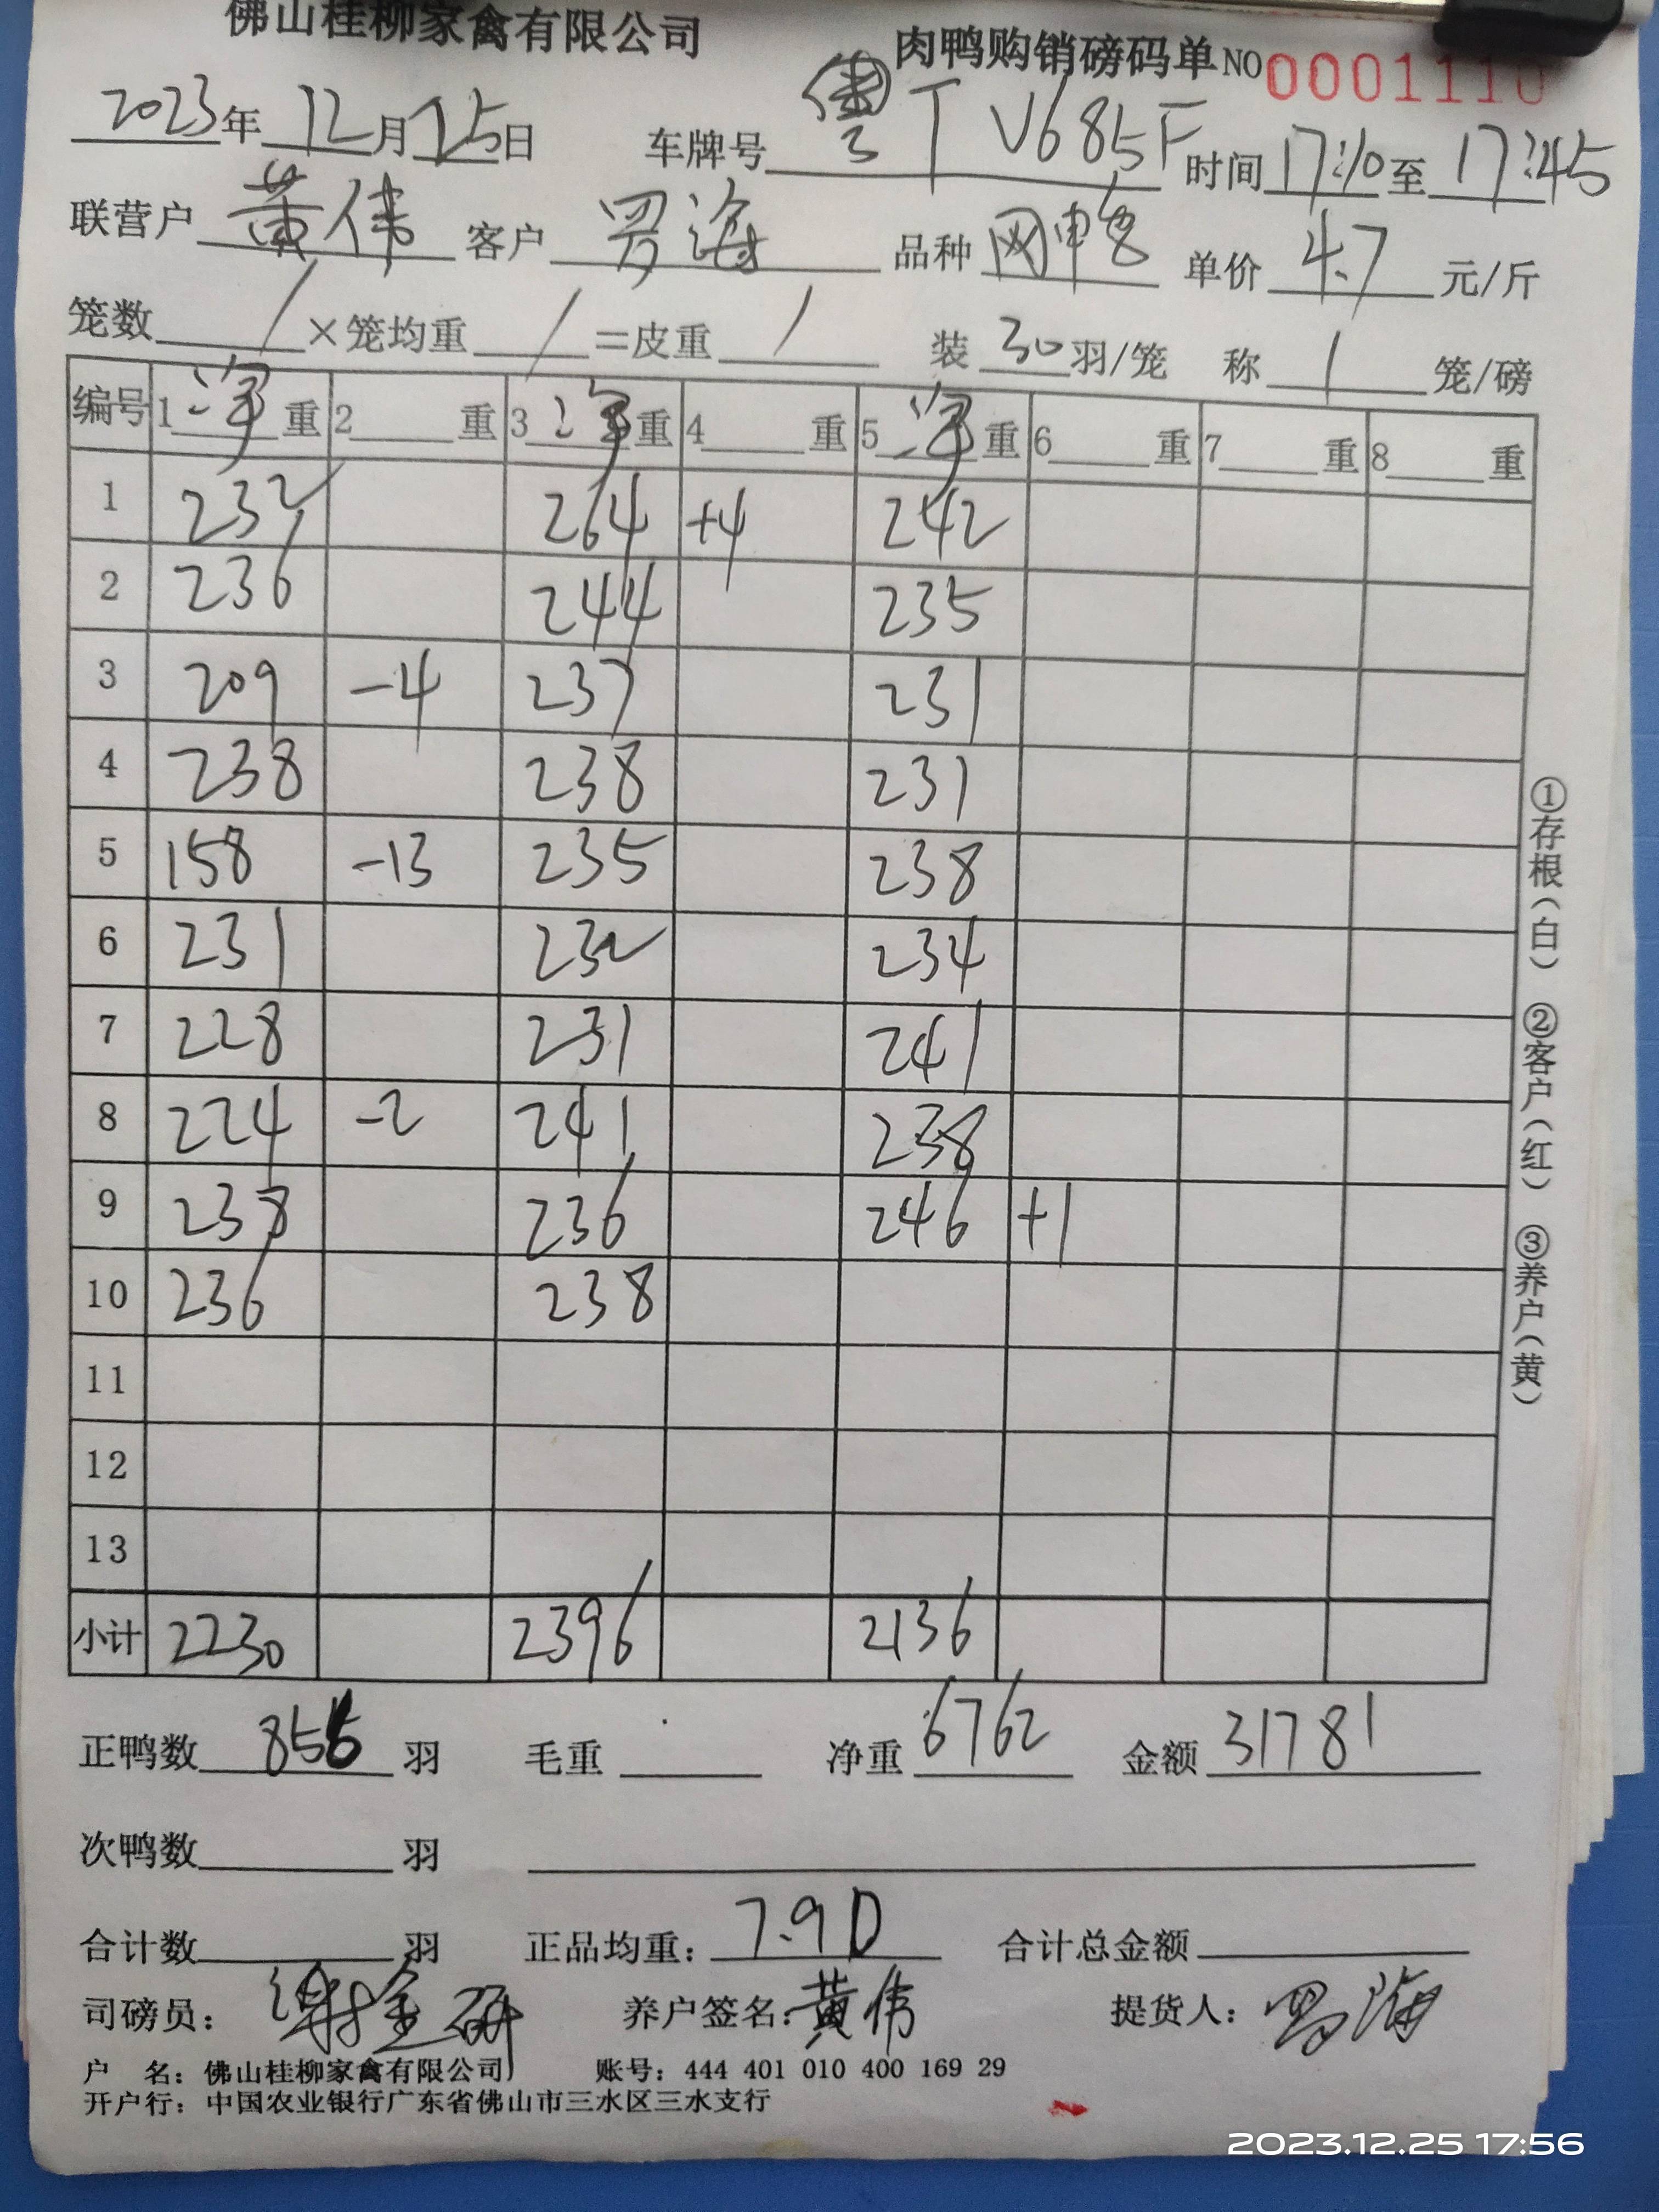 佛山桂柳家禽有限公司 肉鸭购销磅码单 NO 0001110
2023年12月25日 车牌号 粤TV685F 时间 17:10 至 17:45
联营户 黄伟 客户 罗海 品种 网鸭 单价 4.7 元/斤
笼数 / ×笼均重 / =皮重 / 装 30 羽/笼 称 1 笼/磅
编号 1 净 重 2 重 3 净 重 4 重 5 净 重 6 重 7 重 8 重
1 232 264 +4 242
2 236 244 235
3 209 -4 237 231
4 238 238 231
5 158 -13 235 238
6 231 232 234
7 228 231 241
8 224 -2 241 238
9 238 236 246 +1
10 236 238
11
12
13
小计 2230 2396 2136
正鸭数 856 羽 毛重 净重 6762 金额 31781
次鸭数 羽
合计数 羽 正品均重: 7.90 合计总金额
司磅员: 谢金研 养户签名: 黄伟 提货人: 罗海
户 名: 佛山桂柳家禽有限公司 账号: 444 401 010 400 169 29
开户行: 中国农业银行广东省佛山市三水区三水支行
①存根(白) ②客户(红) ③养户(黄)
2023.12.25 17:56